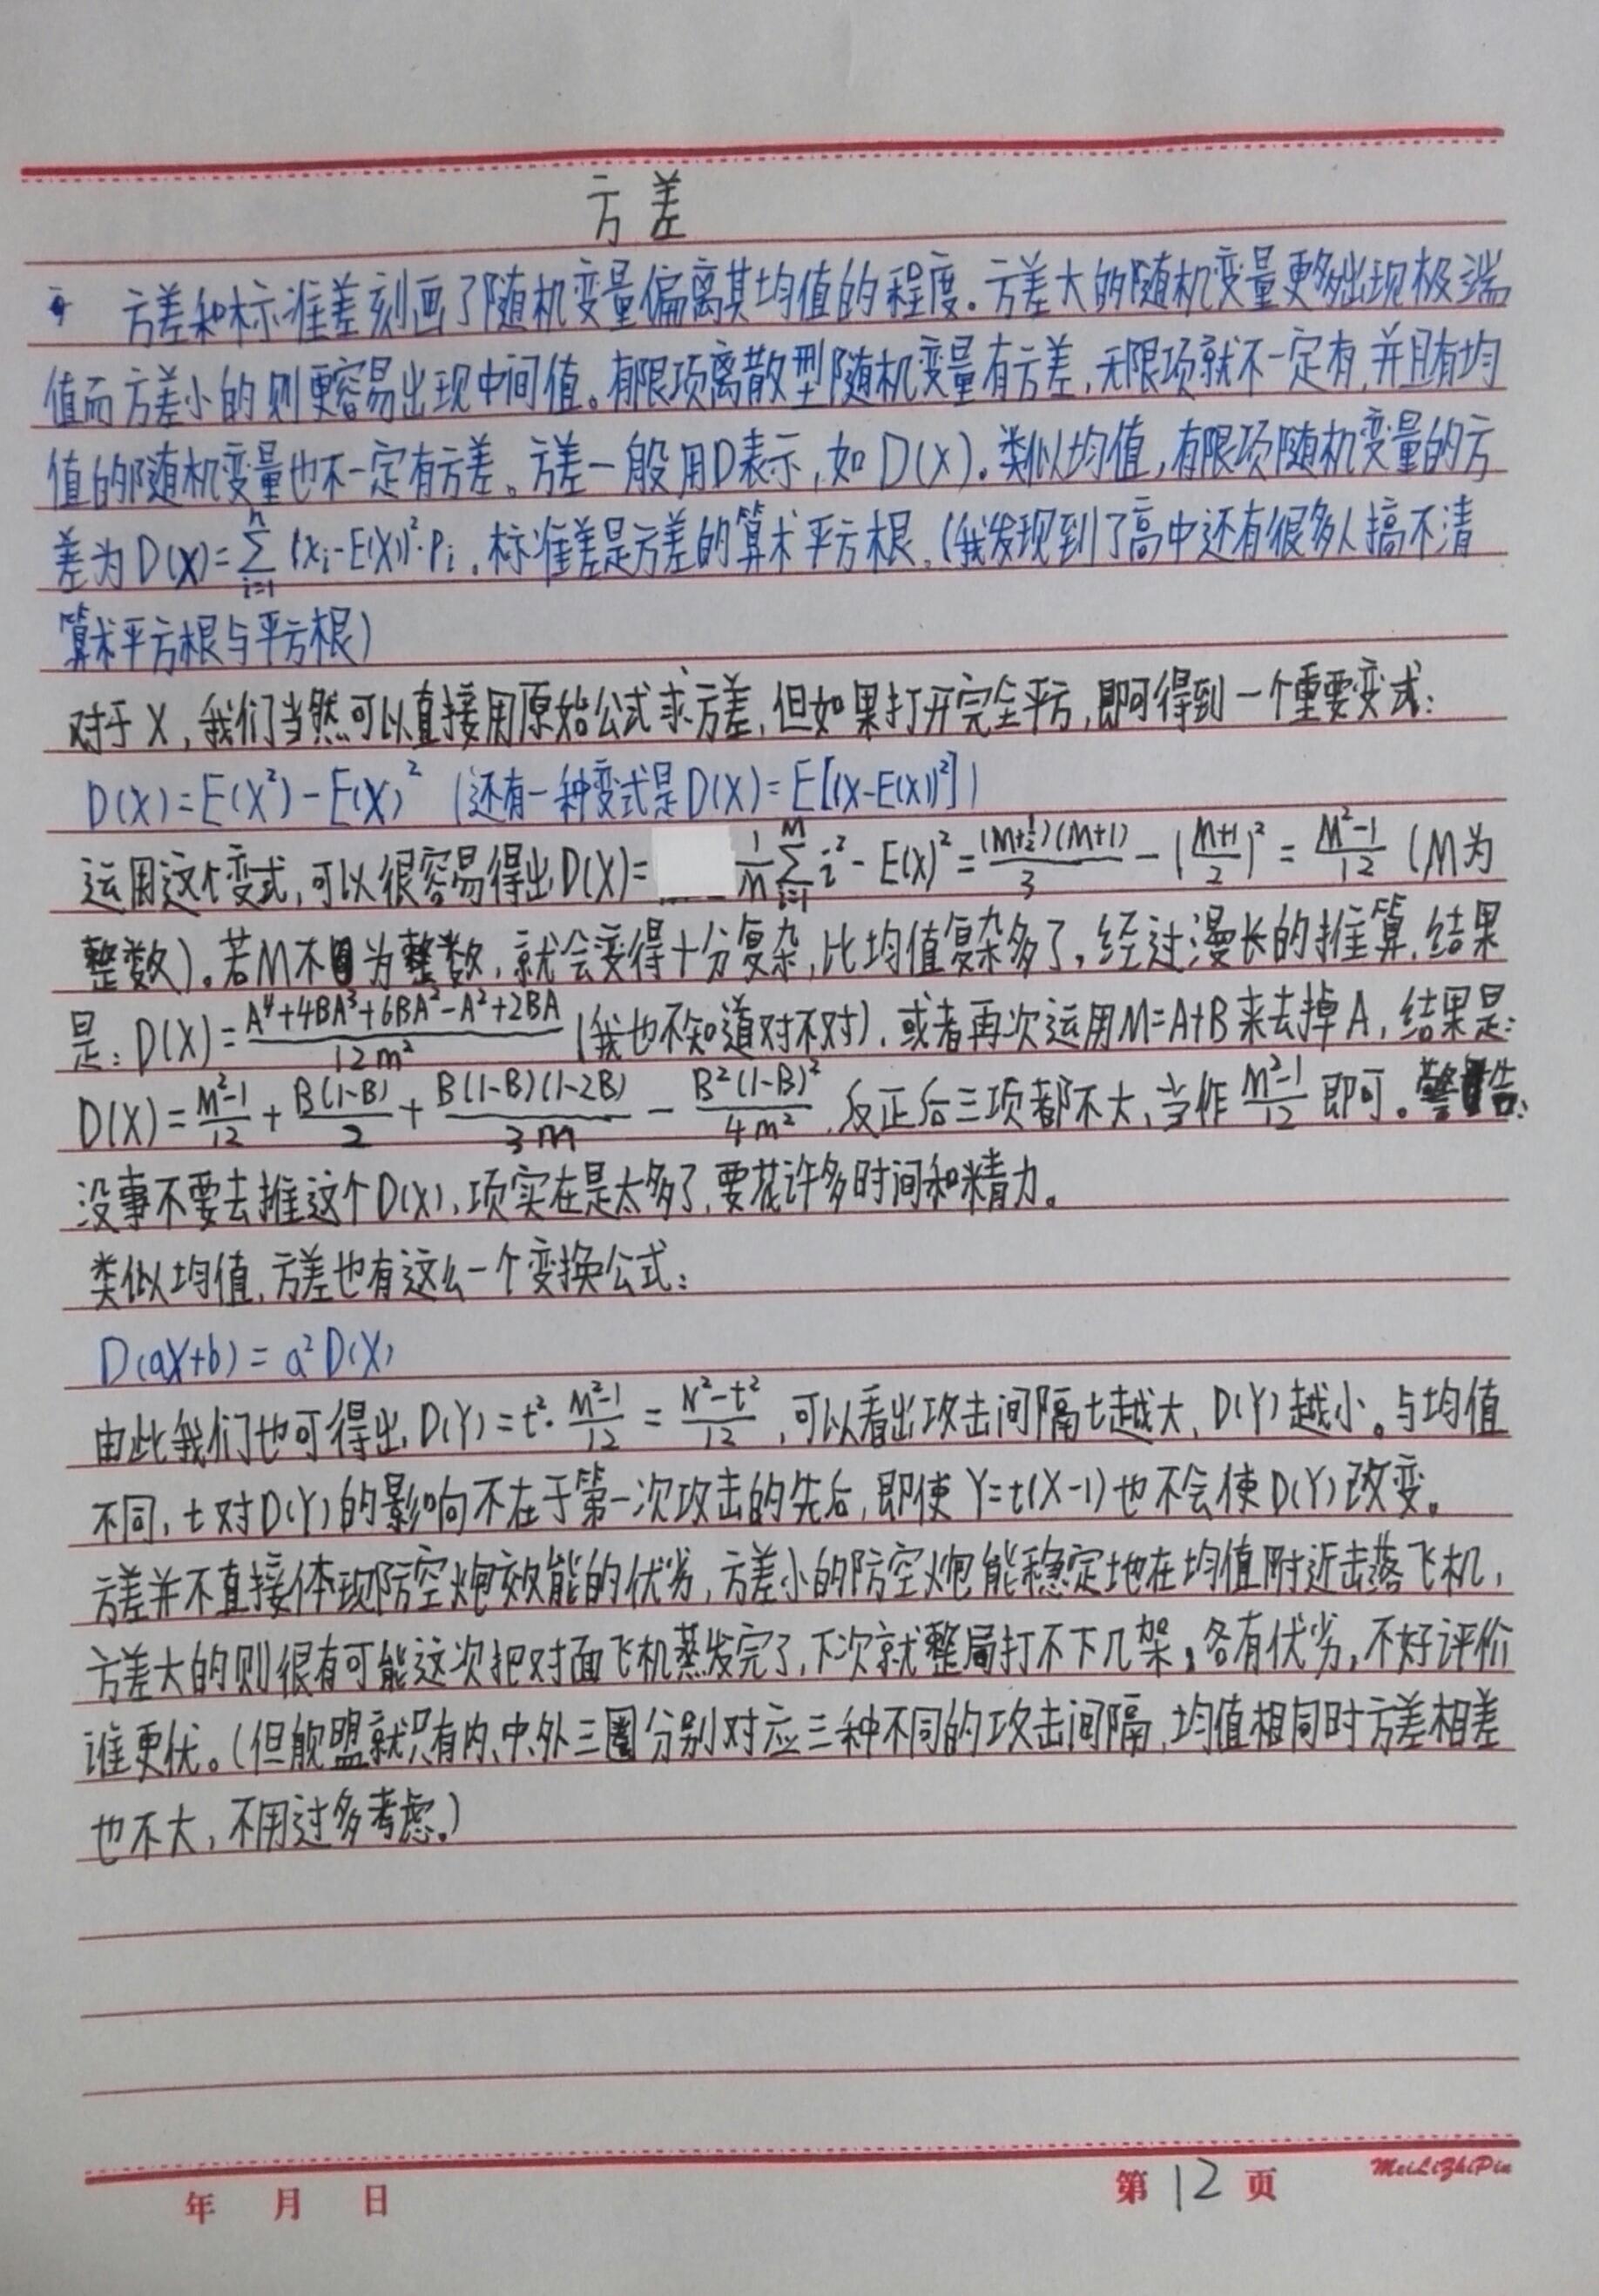 方差
方差和标准差刻画了随机变量偏离其均值的程度。方差大的随机变量更多出现极端
值而方差小的则更容易出现中间值。有限项离散型随机变量有方差,无限项就不一定有,并且有均
值的随机变量也不一定有方差。方差一般用D表示,如D(X)。类似均值,有限项随机变量的方
差为D(X)=∑_{i=1}^{n}(x_i-E(X))²·P_i.标准差是方差的算术平方根.(我发现到了高中还有很多人搞不清
算术平方根与平方根)
对于X,我们当然可以直接用原始公式求方差,但如果打开完全平方,即可得到一个重要变式:
D(X)=E(X²)-E(X)² (还有一种变式是D(X)=E[(X-E(X))²])
运用这个变式,可以很容易得出D(X)= 1/M ∑_{i=1}^{M} i² - E(X)² = (M+1/2)(M+1)/3 - (M+1/2)² = M²-1/12 (M为
整数)。若M不为整数,就会变得十分复杂,比均值复杂多了。经过漫长的推算,结果
是:D(X)= A⁴+4BA³+6BA²-A²+2BA/12m² (我也不知道对不对).或者再次运用M=A+B来去掉A,结果是:
D(X)= M²-1/12 + B(1-B)/2 + B(1-B)(1-2B)/3m - B²(1-B)²/4m² .反正后三项都不大,当作 M²-1/12 即可。警告:
没事不要去推这个D(X),项实在是太多了,要花许多时间和精力。
类似均值,方差也有这么一个变换公式:
D(aX+b)=a²D(X)
由此我们也可得出,D(Y)=t²·M²-1/12 = N²-t²/12 ,可以看出攻击间隔t越大,D(Y)越小。与均值
不同,t对D(Y)的影响不在于第一次攻击的先后,即使Y=t(X-1)也不会使D(Y)改变。
方差并不直接体现防空炮效能的优劣,方差小的防空炮能稳定地在均值附近击落飞机,
方差大的则很有可能这次把对面飞机蒸发完了,下次就整局打不下几架,各有优劣,不好评价
谁更优。(但舰盟就只有内、中、外三圈分别对应三种不同的攻击间隔,均值相同时方差相差
也不大,不用过多考虑。)
年 月 日 第12页 MeiLiZhiPin